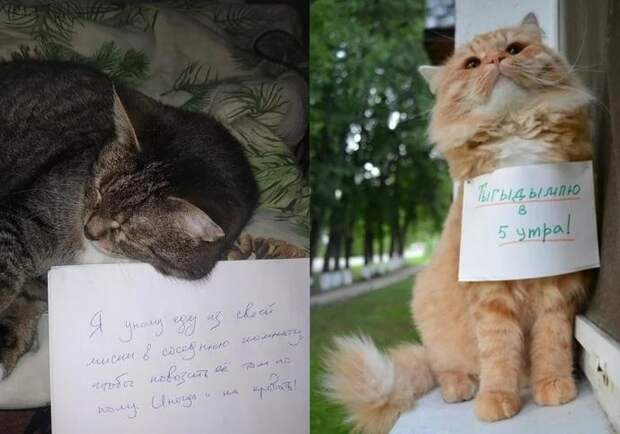 Я уношу еду из своей
миски в соседнюю комнату,
чтобы повозить её там по
полу. Иногда и на кровать!
Тыгыдымлю
в
5 утра!